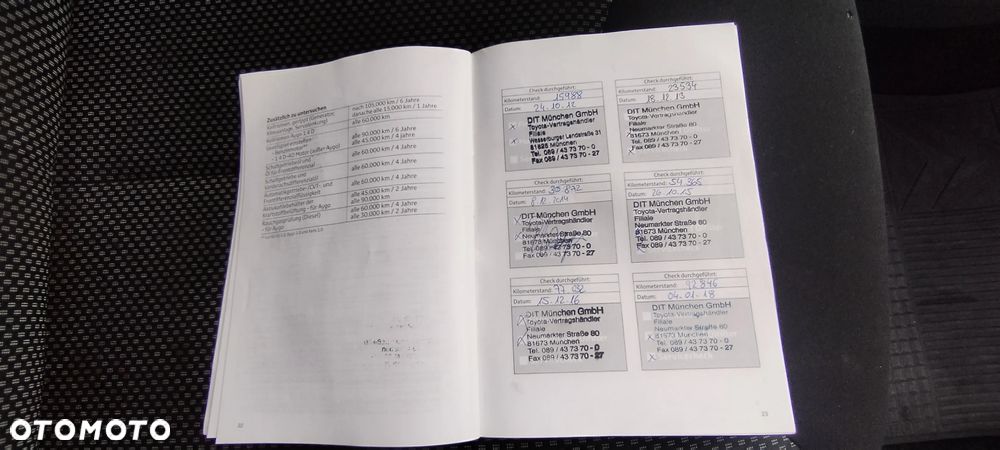 Zusätzlich zu untersuchen
nach 105.000 km / 6 Jahre
danach alle 15.000 km / 1 Jahre
alle 60.000 km
alle 90.000 km / 6 Jahre
alle 45.000 km / 4 Jahre
alle 60.000 km / 4 Jahre
alle 60.000 km / 4 Jahre
alle 45.000 km / 2 Jahre
alle 90.000 km
alle 60.000 km / 4 Jahre
alle 30.000 km / 2 Jahre
22
Check durchgeführt:
Kilometerstand: 15988
Datum: 24.10.12
DIT München GmbH
Toyota-Vertragshändler
Filiale
Wasserburger Landstraße 31
81825 München
Tel. 089 / 43 73 70 - 0
Fax 089 / 43 73 70 - 27
Check durchgeführt:
Kilometerstand: 23534
Datum: 18.12.13
DIT München GmbH
Toyota-Vertragshändler
Filiale
Neumarkter Straße 80
81673 München
Tel. 089 / 43 73 70 - 0
Fax 089 / 43 73 70 - 27
Check durchgeführt:
Kilometerstand: 30872
Datum: 8.12.2014
DIT München GmbH
Toyota-Vertragshändler
Filiale
Neumarkter Straße 80
81673 München
Tel. 089 / 43 73 70 - 0
Fax 089 / 43 73 70 - 27
Check durchgeführt:
Kilometerstand: 54 365
Datum: 26.10.15
DIT München GmbH
Toyota-Vertragshändler
Filiale
Neumarkter Straße 80
81673 München
Tel. 089 / 43 73 70 - 0
Fax 089 / 43 73 70 - 27
Check durchgeführt:
Kilometerstand: 77.032
Datum: 15.12.16
DIT München GmbH
Toyota-Vertragshändler
Filiale
Neumarkter Straße 80
81673 München
Tel. 089 / 43 73 70 - 0
Fax 089 / 43 73 70 - 27
Check durchgeführt:
Kilometerstand: 92846
Datum: 04.01.18
DIT München GmbH
Toyota-Vertragshändler
Filiale
Neumarkter Straße 80
81673 München
Tel. 089 / 43 73 70 - 0
Fax 089 / 43 73 70 - 27
23
OTOMOTO